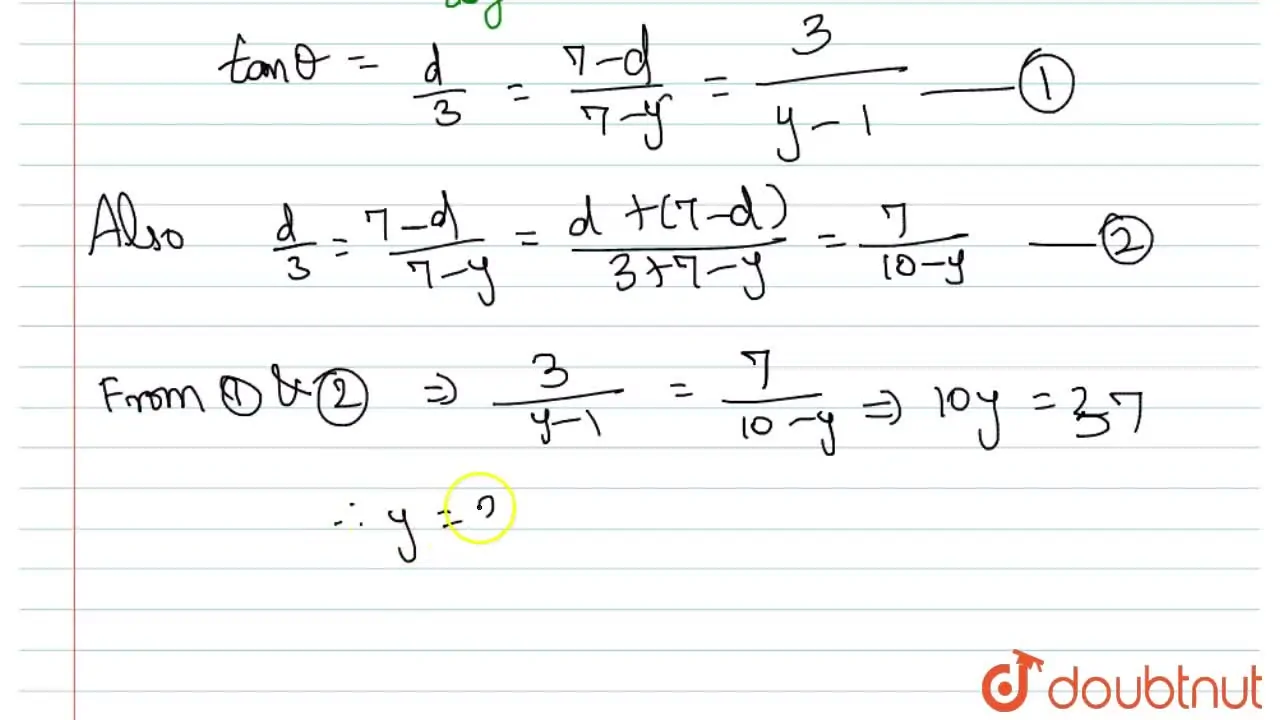 tanθ = d/3 = 7-d/7-y = 3/y-1 —— ①
Also d/3 = 7-d/7-y = d+(7-d)/3+7-y = 7/10-y —— ②
From ① & ② ⇒ 3/y-1 = 7/10-y ⇒ 10y = 37
∴ y =
doubtnut